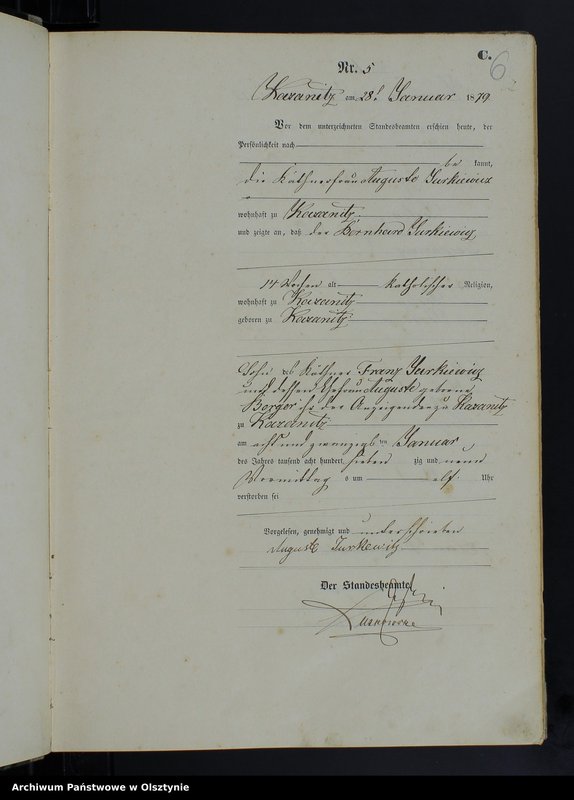 C.
6
Nr. 5
Kazanitz am 28t Januar 1879
Vor dem unterzeichneten Standesbeamten erschien heute, der
Persönlichkeit nach
be kannt,
die Käthnerfrau Auguste Jurkiewicz
wohnhaft zu Kazanitz
und zeigte an, daß der Bernhard Jurkiewicz
14 Wochen alt katholischer Religion,
wohnhaft zu Kazanitz
geboren zu Kazanitz
Sohn des Käthner Franz Jurkiewicz
und dessen Ehefrau Auguste geborene
der Anzeigenden zu Kazanitz
zu Kazanitz
am acht und zwanzigsten Januar
des Jahres tausend acht hundert sieben zig und neun
Vormittag s um elf Uhr
verstorben sei
Vorgelesen, genehmigt und unterschrieben
Auguste Jurkewitz
Der Standesbeamte
Archiwum Państwowe w Olsztynie